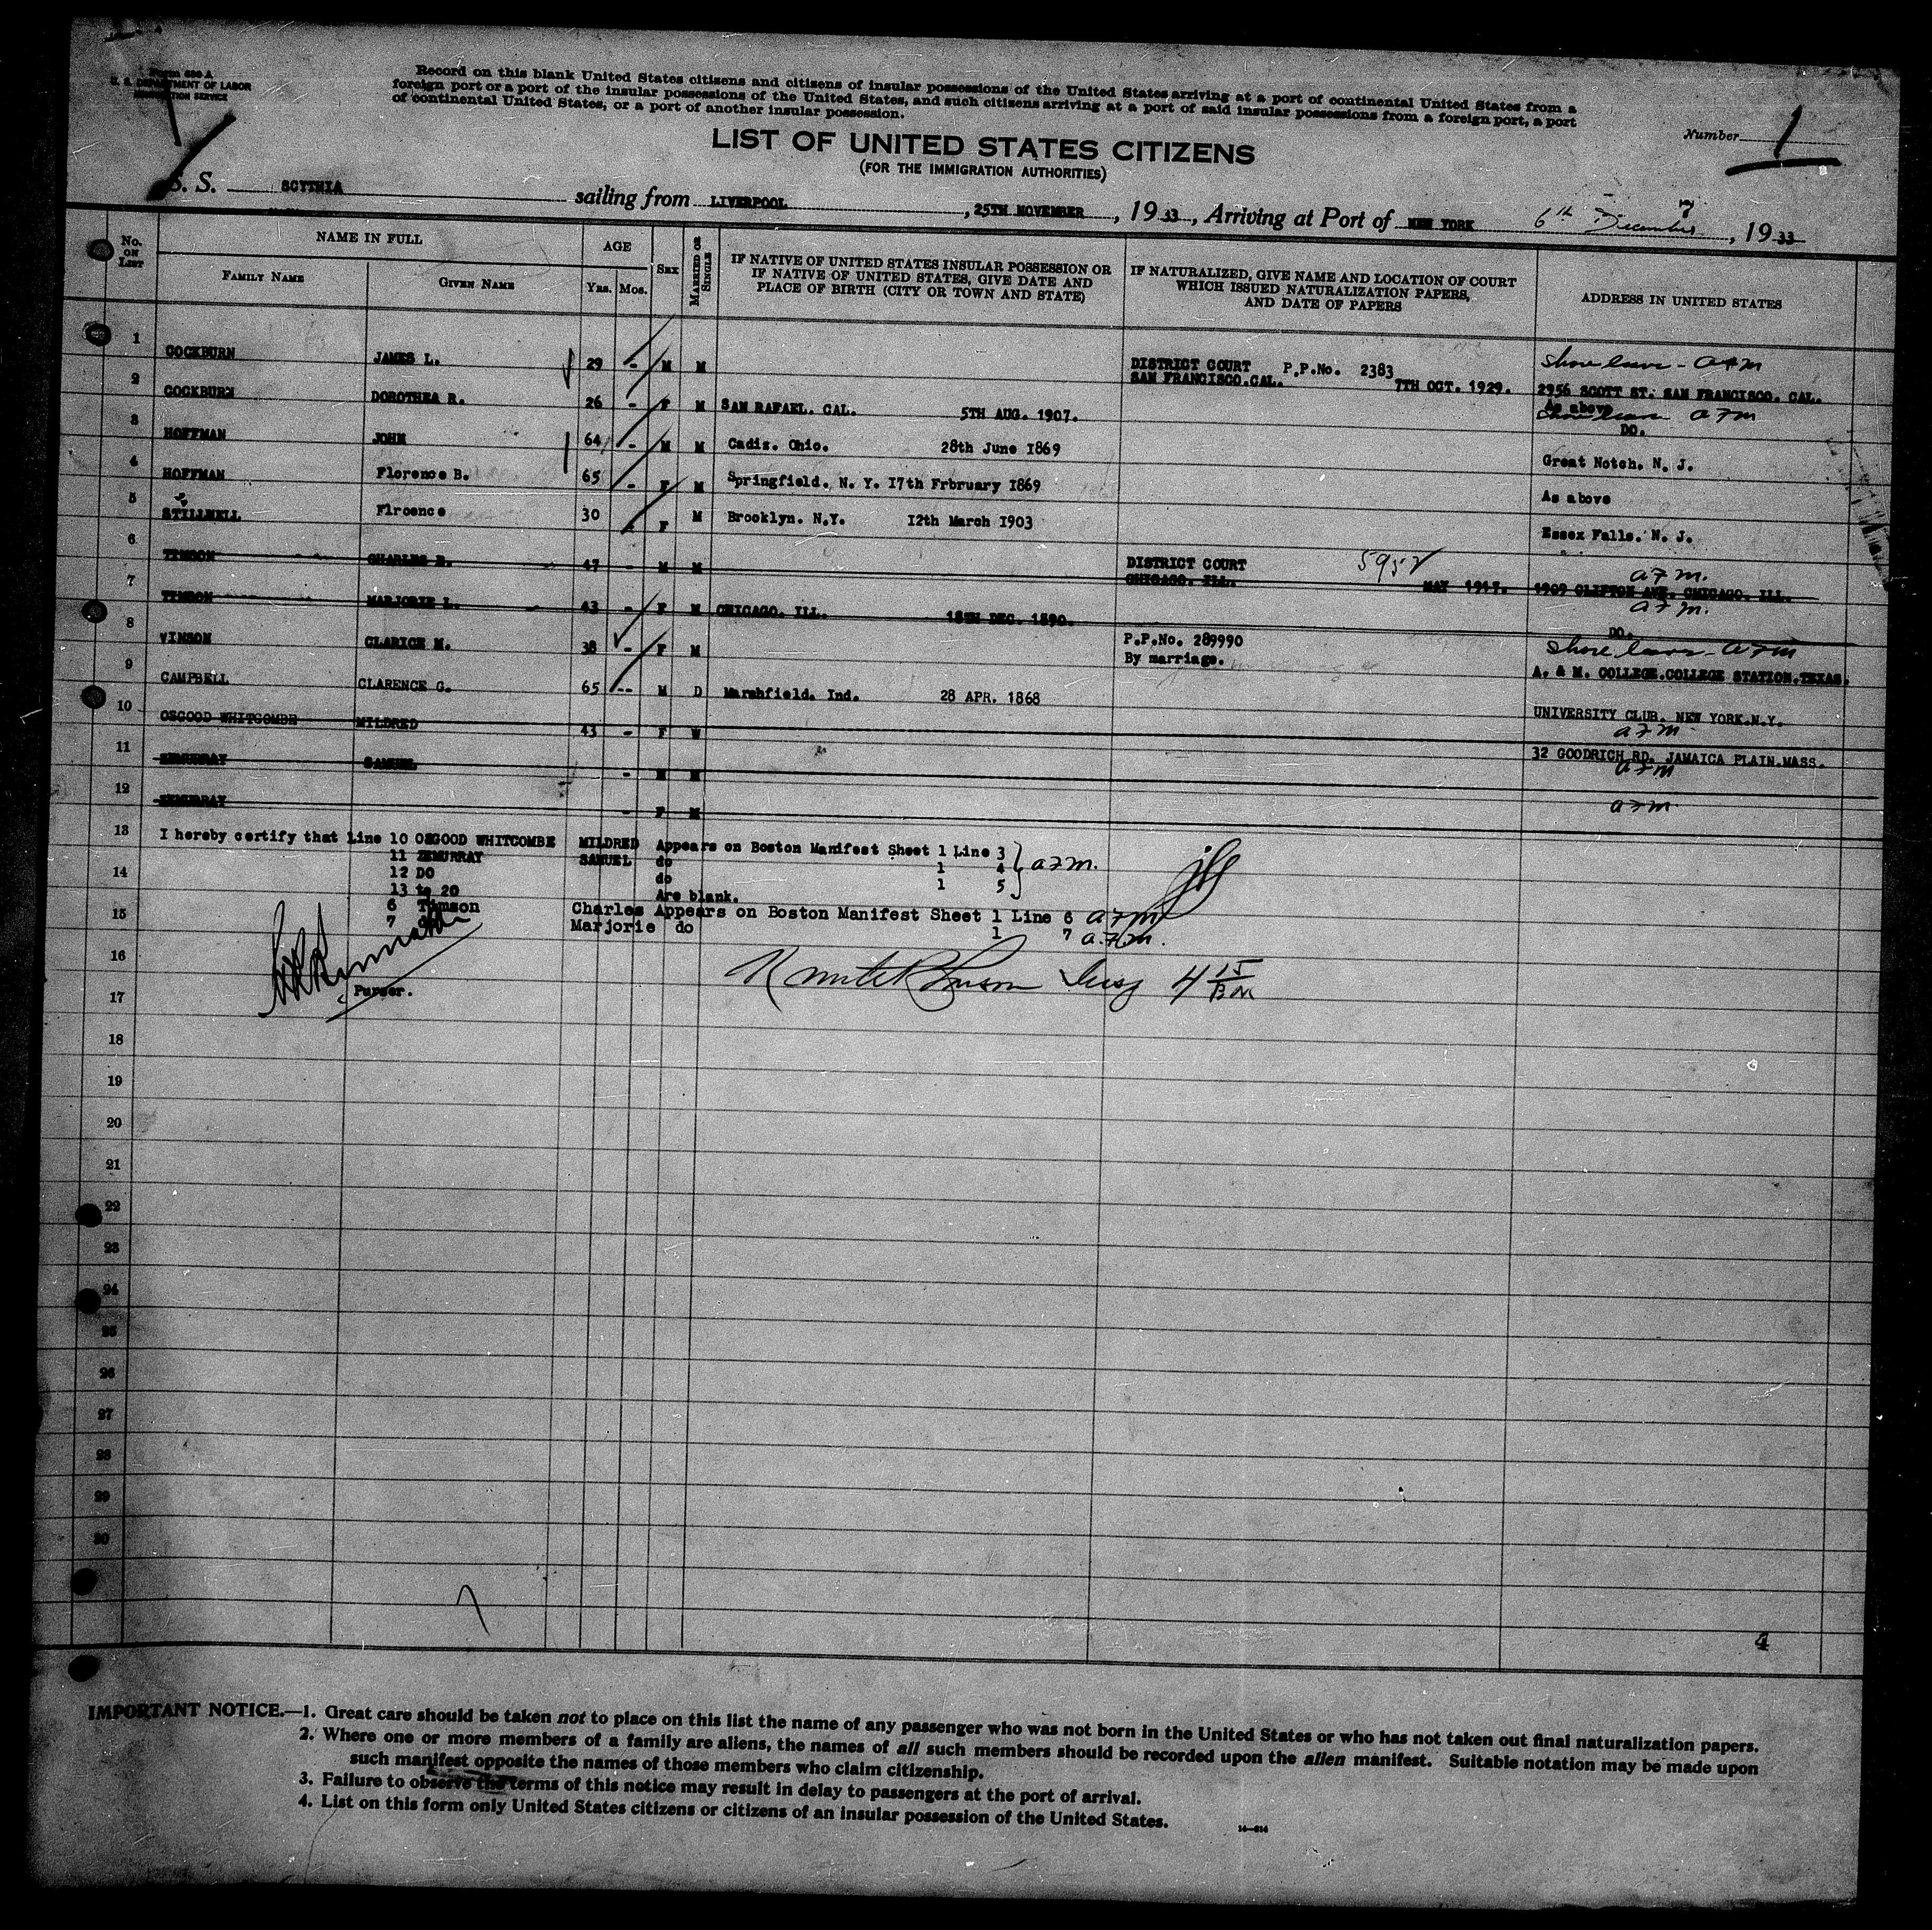 Form 630-A
U. S. DEPARTMENT OF LABOR
IMMIGRATION SERVICE
Record on this blank United States citizens and citizens of insular possessions of the United States arriving at a port of continental United States from a
foreign port or a port of the insular possessions of the United States, and such citizens arriving at a port of said insular possessions from a foreign port, a port
of continental United States, or a port of another insular possession.
Number 1
LIST OF UNITED STATES CITIZENS
(FOR THE IMMIGRATION AUTHORITIES)
S. S. SCYTHIA sailing from LIVERPOOL, 25TH NOVEMBER, 1933, Arriving at Port of NEW YORK 6th December 7, 1933
No. on List NAME IN FULL AGE Sex MARRIED OR SINGLE IF NATIVE OF UNITED STATES INSULAR POSSESSION OR IF NATIVE OF UNITED STATES, GIVE DATE AND PLACE OF BIRTH (CITY OR TOWN AND STATE) IF NATURALIZED, GIVE NAME AND LOCATION OF COURT WHICH ISSUED NATURALIZATION PAPERS, AND DATE OF PAPERS ADDRESS IN UNITED STATES
FAMILY NAME GIVEN NAME Yrs. Mos.
1 COCKBURN JAMES L. 29 - M M DISTRICT COURT SAN FRANCISCO.CAL. P.P.No. 2383 7TH OCT. 1929. Shore leave - a7m 2956 SCOTT ST. SAN FRANCISCO. CAL.
2 COCKBURN DOROTHEA R. 26 - F M SAN RAFAEL. CAL. 5TH AUG. 1907. As above Shore leave a7m DO.
3 HOFFMAN JOHN 64 - M M Cadiz. Ohio. 28th June 1869 Great Notch. N. J.
4 HOFFMAN Florence B. 65 - F M Springfield. N. Y. 17th Frbruary 1869 As above
5 STILLWELL Flroence 30 F M Brooklyn. N.Y. 12th March 1903 Essex Falls. N. J.
6 TIMSON CHARLES E. 47 - M M DISTRICT COURT CHICAGO. ILL. 5952 MAY 1917. a7m. 1909 CLIFTON AVE. CHICAGO. ILL.
7 TIMSON MARJORIE L. 43 - F M CHICAGO. ILL. 18TH DEC. 1890. a7m. DO.
8 VINSON CLARICE M. 38 - F M P.P.No. 289990 By marriage. Shore leave - a7m A. & M. COLLEGE.COLLEGE STATION.TEXAS.
9 CAMPBELL CLARENCE G. 65 -- M D Marshfield. Ind. 28 APR. 1868 UNIVERSITY CLUB. NEW YORK.N.Y.
10 OSGOOD WHITCOMBE MILDRED 43 - F W a7m 32 GOODRICH RD. JAMAICA PLAIN.MASS.
11 ZEMURRAY SAMUEL - M M a7m
12 ZEMURRAY - F M a7m
13 I hereby certify that Line 10 OSGOOD WHITCOMBE MILDRED Appears on Boston Manifest Sheet 1 Line 3
11 ZEMURRAY SAMUEL do 1 4 a7m.
14 12 DO do 1 5
13 to 20 Are blank.
15 6 Timson Charles Appears on Boston Manifest Sheet 1 Line 6 a7m
7 do Marjorie do 1 7 a.7.m.
16
Purser.
17
18
19
20
21
22
23
24
25
26
27
28
29
30
4
IMPORTANT NOTICE.—1. Great care should be taken not to place on this list the name of any passenger who was not born in the United States or who has not taken out final naturalization papers.
2. Where one or more members of a family are aliens, the names of all such members should be recorded upon the alien manifest. Suitable notation may be made upon
such manifest opposite the names of those members who claim citizenship.
3. Failure to observe the terms of this notice may result in delay to passengers at the port of arrival.
4. List on this form only United States citizens or citizens of an insular possession of the United States.
14—614